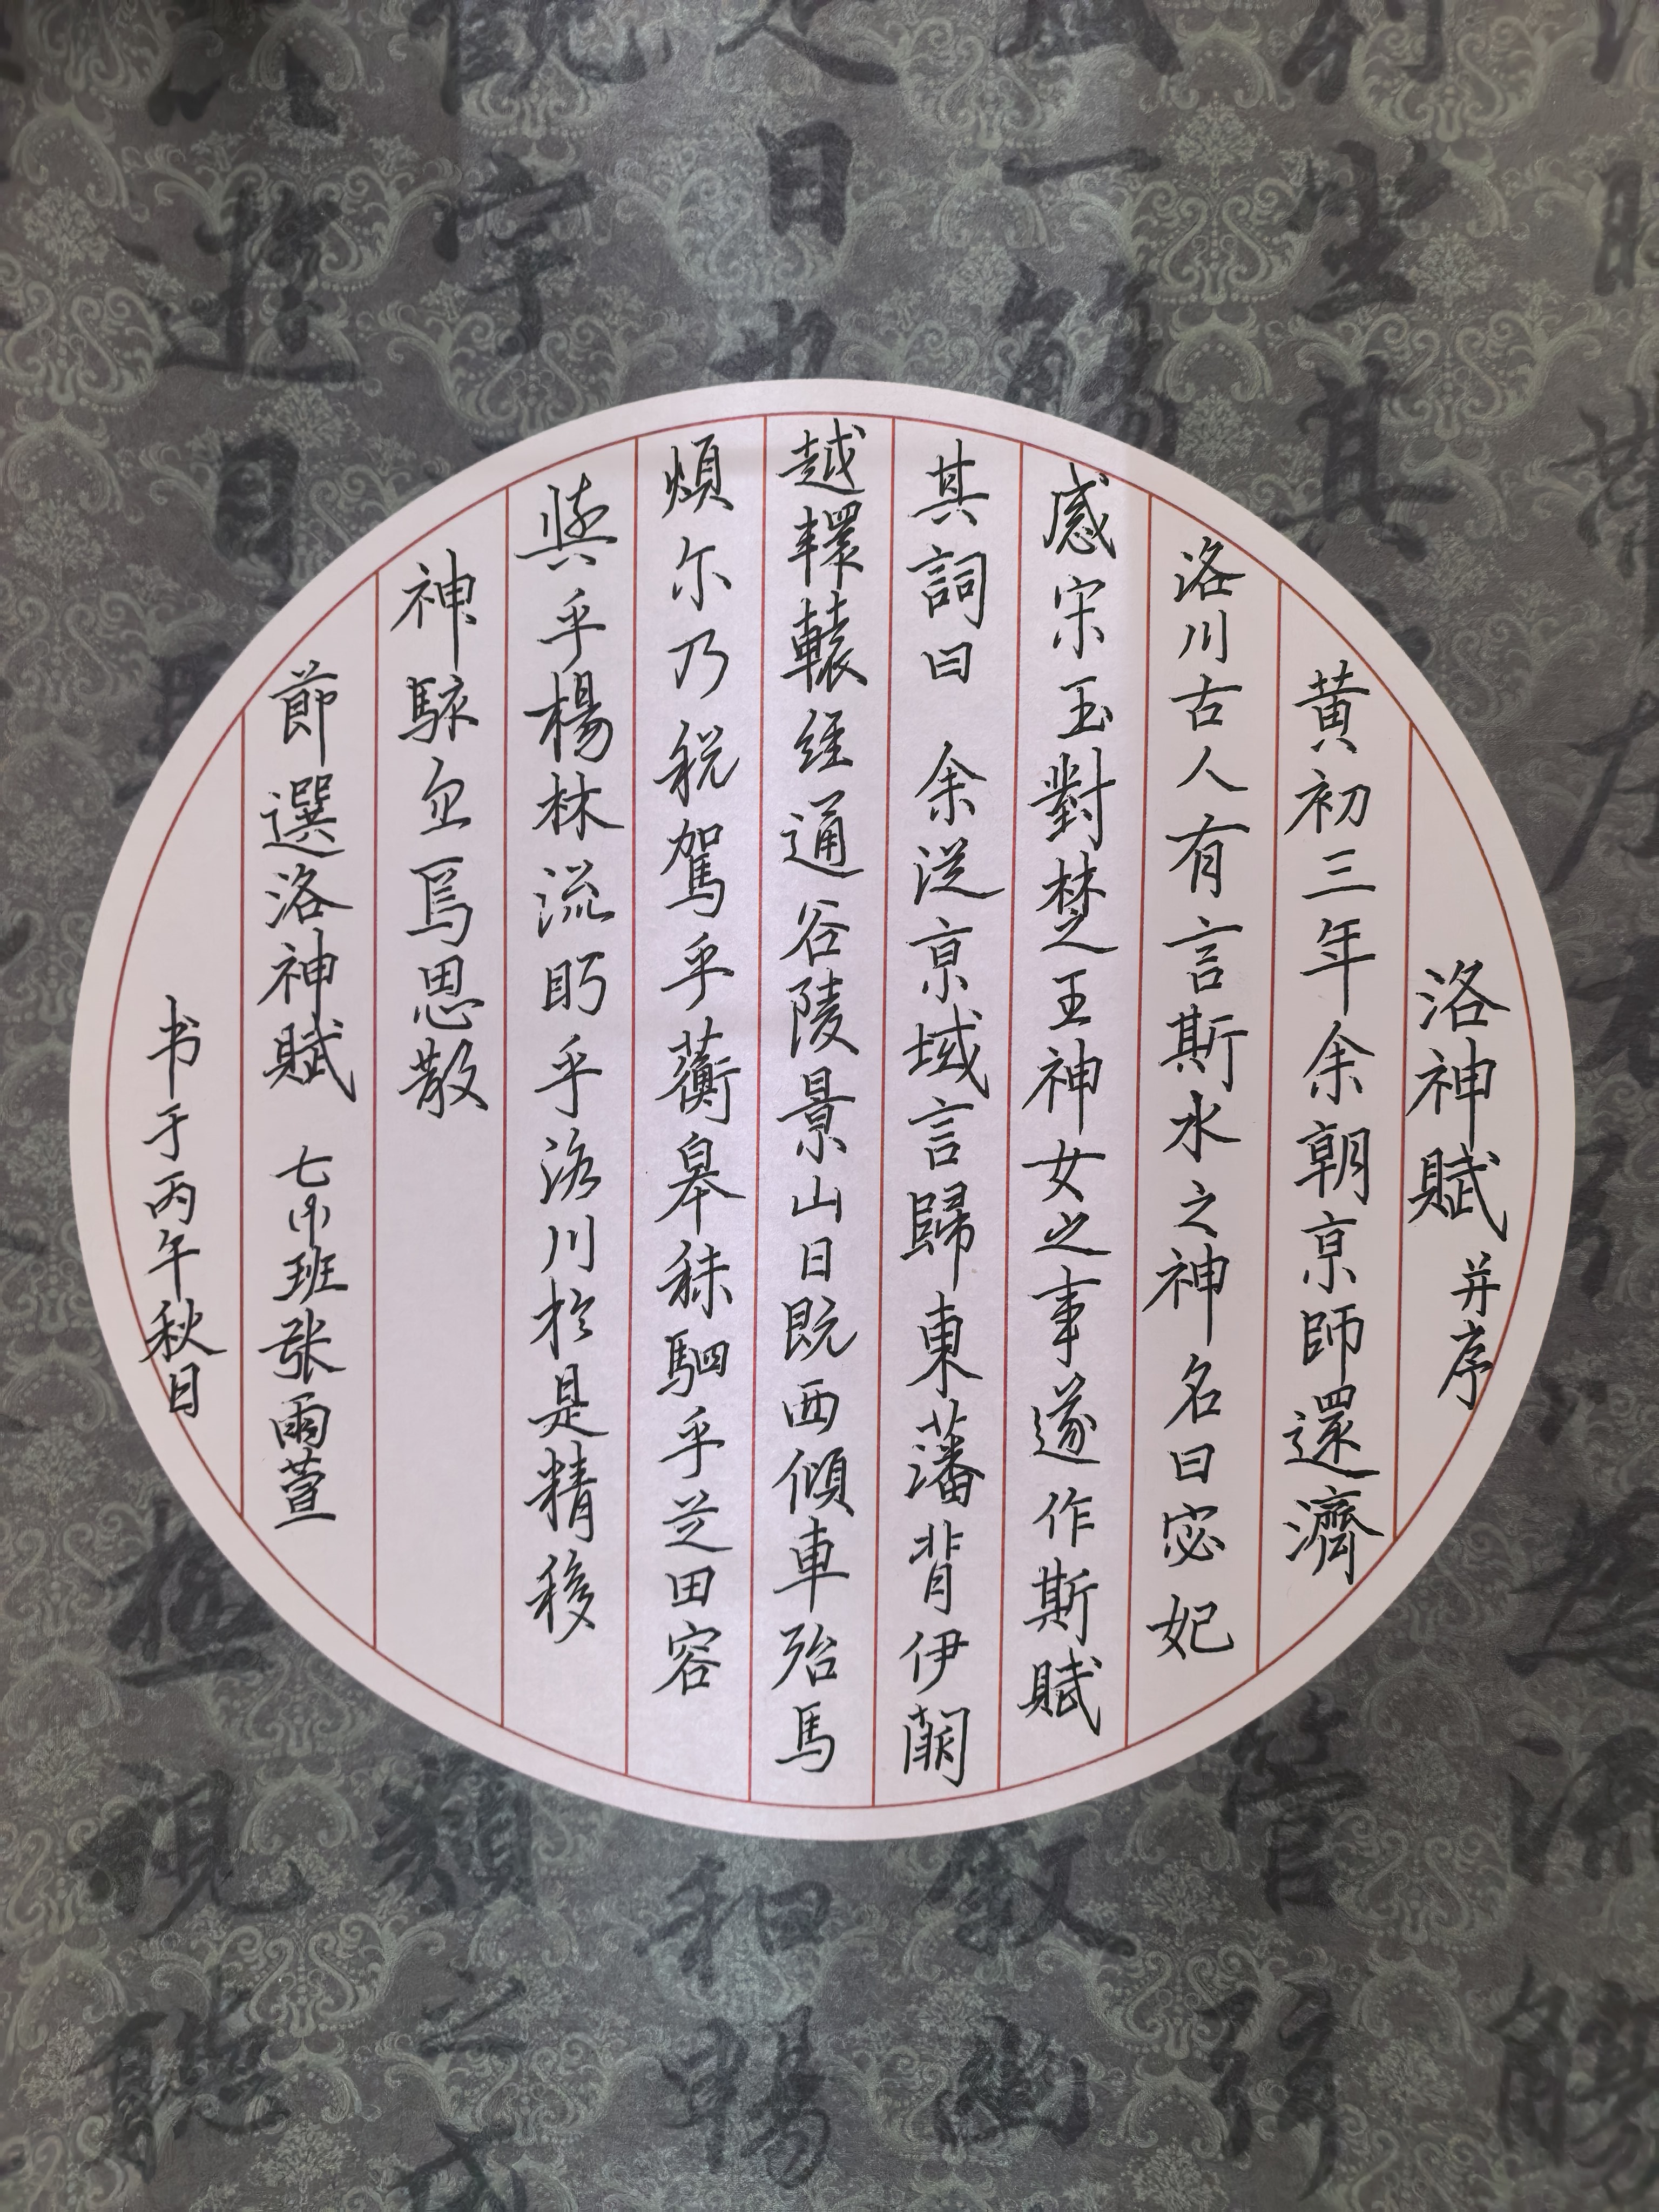 洛神賦 并序
黄初三年余朝京師還濟
洛川古人有言斯水之神名曰宓妃
感宋玉對楚王神女之事遂作斯賦
其詞曰 余從京域言歸東藩背伊闕
越轘轅經通谷陵景山日既西傾車殆馬
煩尔乃税駕乎蘅皋秣駟乎芝田容
與乎楊林流眄乎洛川於是精移
神駭忽焉思散
節選洛神賦 七 班张雨萱
书于丙午秋日